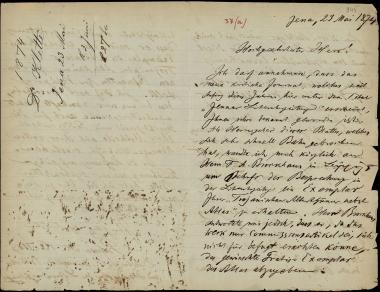 1874
Dr. Klette
Jena 23 Mai
2 Juni
1874
Jena, 23 Mai 1874
Hochgeehrter Herr!
Ich darf annehmen, dass das
neue kritische Journal, welches seit
Anfang dieses Jahres hier unter dem Titel
„Jenaer Literaturzeitung" erscheint,
Ihnen schon bekannt geworden ist.
Als Herausgeber dieses Blattes, welches
sich sehr schnell Bahn gebrochen
hat, wandte ich mich kürzlich an
Herrn F. A. Brockhaus in Leipzig
zum Behuf der Besprechung in
der Literaturztg. ein Exemplar
Ihrer Trojanischen Alterthümer nebst
Atlas zu erhalten. Herr Brockhaus
antwortete mir jedoch, dass er, da das
Werk nur Commissionsartikel sei, sich
nicht für befugt erachten könne,
das gewünschte Freie Exemplar
des Atlas abzugeben.